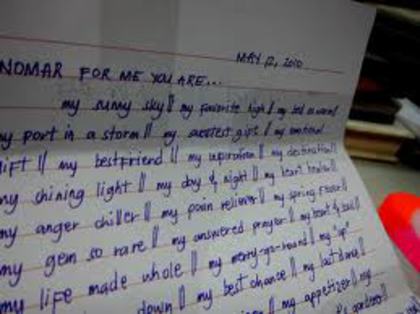 MAY 12, 2010
NOMAR FOR ME YOU ARE...
my sunny sky || my favorite high || my bed so warm||
my port in a storm || my sweetest gift || my emotional
lift || my bestfriend || my inspiration || my destination ||
my shining light || my day & night || my heart healer ||
my anger chiller || my pain reliever || my spring fever ||
my gem so rare || my answered prayer || my heart & soul ||
my life made whole || my merry-go-round || my "up"
down || my best chance || my last dance ||
my appetizer || my